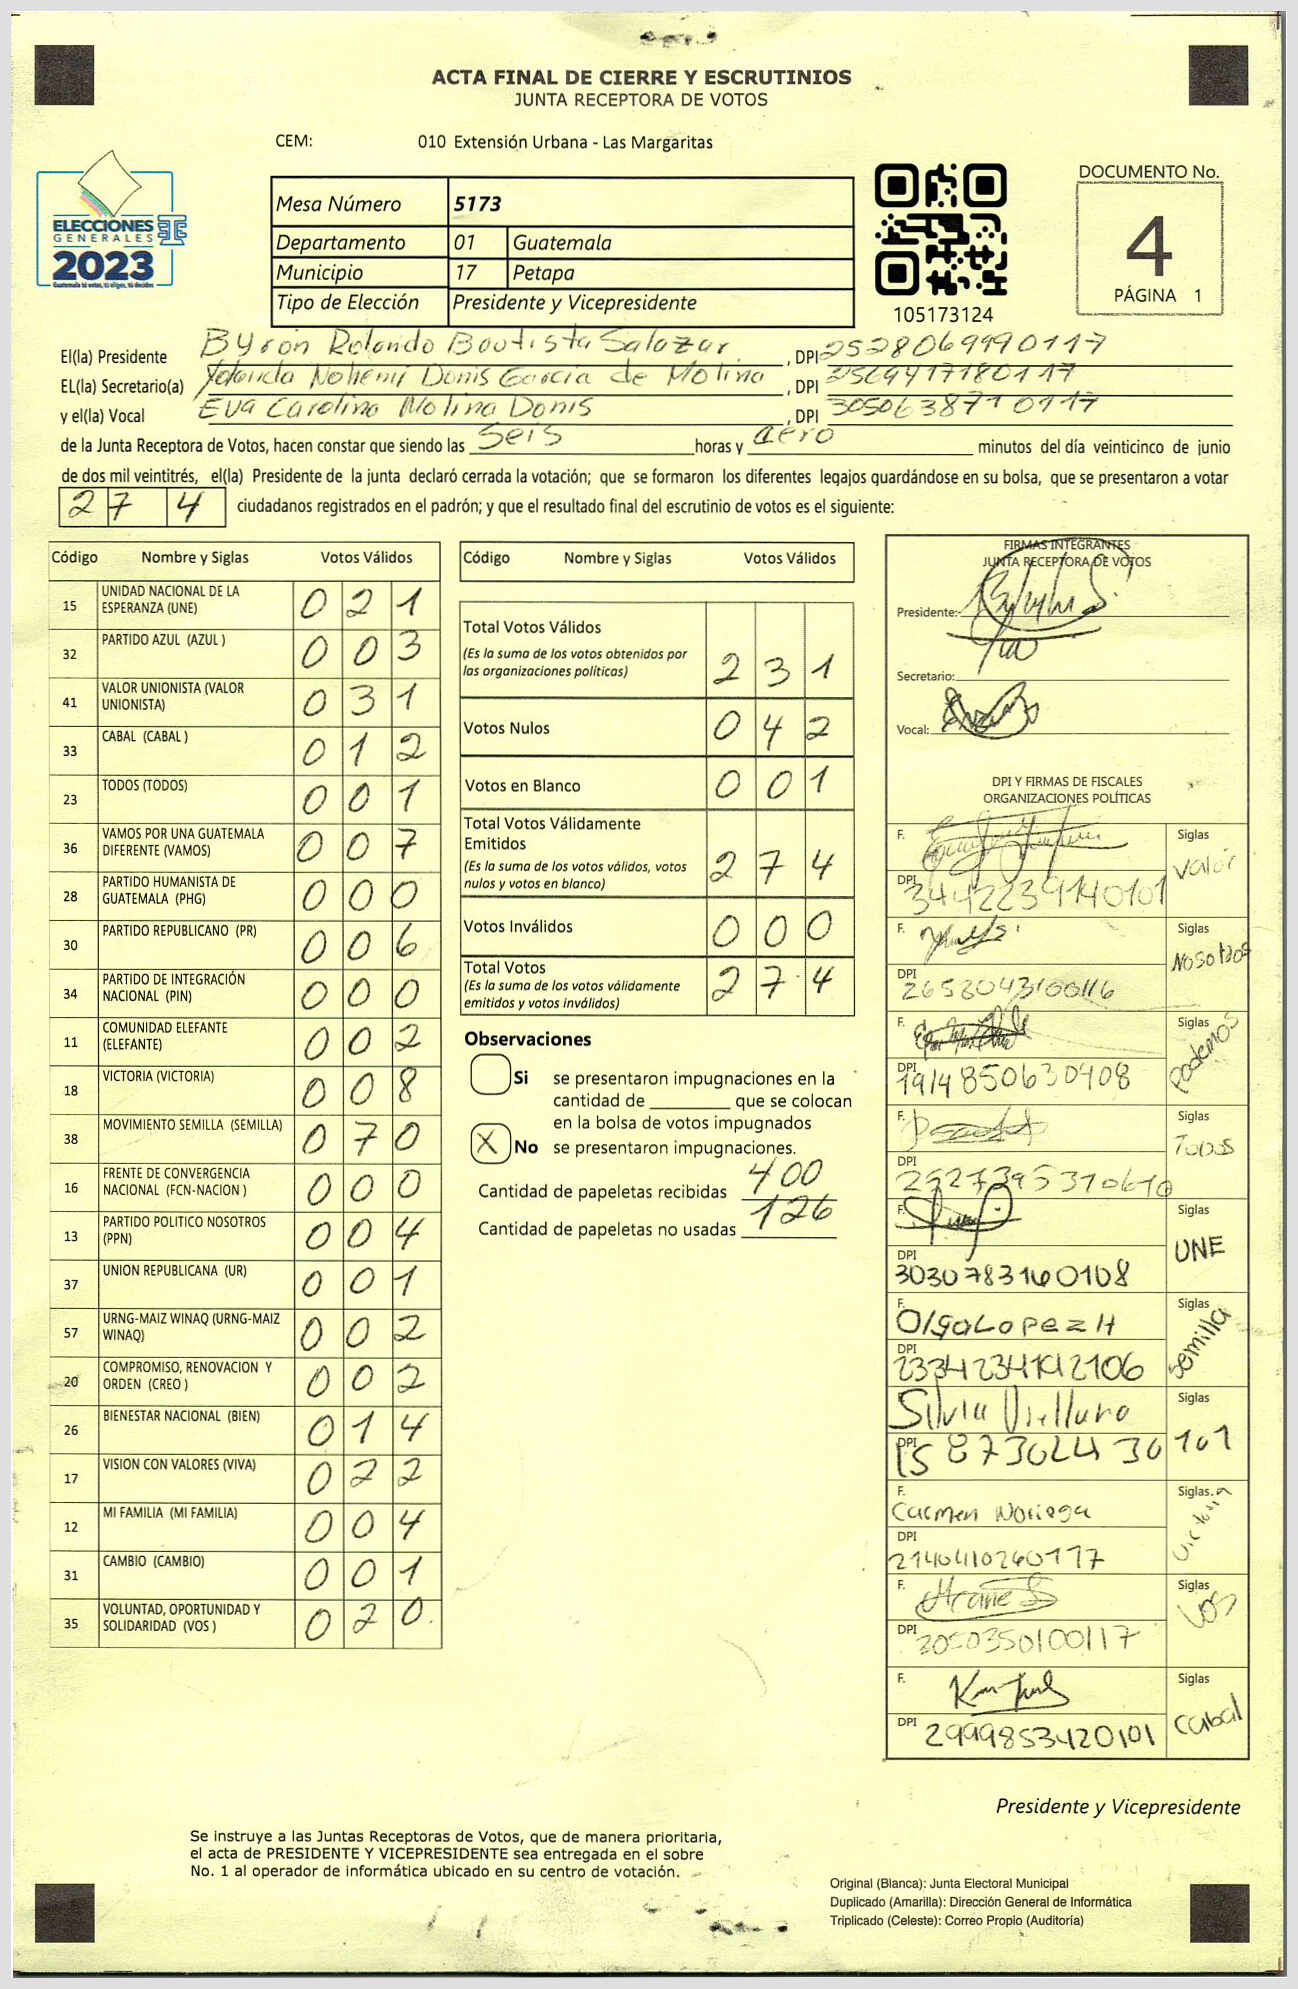 ACTA FINAL DE CIERRE Y ESCRUTINIOS
JUNTA RECEPTORA DE VOTOS
CEM: 010 Extensión Urbana - Las Margaritas
ELECCIONES
GENERALES
2023
Guatemala tú votas, tú eliges, tú decides
Mesa Número 5173
Departamento 01 Guatemala
Municipio 17 Petapa
Tipo de Elección Presidente y Vicepresidente
105173124
DOCUMENTO No.
4
PÁGINA 1
El(la) Presidente Byron Rolando Bautista Salazar, DPI 2528069990117
EL(la) Secretario(a) Yolanda Nohemí Donis García de Molina, DPI
y el(la) Vocal Eva Carolina Molina Donis, DPI 3050638710117
de la Junta Receptora de Votos, hacen constar que siendo las seis horas y cero minutos del día veinticinco de junio
de dos mil veintitrés, el(la) Presidente de la junta declaró cerrada la votación; que se formaron los diferentes legajos guardándose en su bolsa, que se presentaron a votar
274 ciudadanos registrados en el padrón; y que el resultado final del escrutinio de votos es el siguiente:
Código Nombre y Siglas Votos Válidos
15 UNIDAD NACIONAL DE LA ESPERANZA (UNE) 021
32 PARTIDO AZUL (AZUL ) 003
41 VALOR UNIONISTA (VALOR UNIONISTA) 031
33 CABAL (CABAL ) 012
23 TODOS (TODOS) 001
36 VAMOS POR UNA GUATEMALA DIFERENTE (VAMOS) 007
28 PARTIDO HUMANISTA DE GUATEMALA (PHG) 000
30 PARTIDO REPUBLICANO (PR) 006
34 PARTIDO DE INTEGRACIÓN NACIONAL (PIN) 000
11 COMUNIDAD ELEFANTE (ELEFANTE) 002
18 VICTORIA (VICTORIA) 008
38 MOVIMIENTO SEMILLA (SEMILLA) 070
16 FRENTE DE CONVERGENCIA NACIONAL (FCN-NACION ) 000
13 PARTIDO POLITICO NOSOTROS (PPN) 004
37 UNION REPUBLICANA (UR) 001
57 URNG-MAIZ WINAQ (URNG-MAIZ WINAQ) 002
20 COMPROMISO, RENOVACION Y ORDEN (CREO ) 002
26 BIENESTAR NACIONAL (BIEN) 014
17 VISION CON VALORES (VIVA) 022
12 MI FAMILIA (MI FAMILIA) 004
31 CAMBIO (CAMBIO) 001
35 VOLUNTAD, OPORTUNIDAD Y SOLIDARIDAD (VOS ) 020
Código Nombre y Siglas Votos Válidos
Total Votos Válidos 231
(Es la suma de los votos obtenidos por
las organizaciones políticas)
Votos Nulos 042
Votos en Blanco 001
Total Votos Válidamente
Emitidos 274
(Es la suma de los votos válidos, votos
nulos y votos en blanco)
Votos Inválidos 000
Total Votos 274
(Es la suma de los votos válidamente
emitidos y votos inválidos)
Observaciones
Si se presentaron impugnaciones en la
cantidad de ________ que se colocan
en la bolsa de votos impugnados
X No se presentaron impugnaciones.
Cantidad de papeletas recibidas 400
Cantidad de papeletas no usadas 126
FIRMAS INTEGRANTES
JUNTA RECEPTORA DE VOTOS
Presidente:
Secretario:
Vocal:
DPI Y FIRMAS DE FISCALES
ORGANIZACIONES POLÍTICAS
F. Siglas Valor
DPI 3442239140101
F. Siglas Nosotros
DPI 2658043100116
F. Siglas Podemos
DPI 1914850630408
F. Siglas Todos
DPI
F. Siglas UNE
DPI 3030783160108
F. Olga Lopez H Siglas Semilla
DPI 2334234192106
F. Silvia Siglas
DPI
F. Carmen Noriega Siglas Victoria
DPI 2140410260117
F. Siglas VOS
DPI 3050350100117
F. Siglas Cabal
DPI 2999853420101
Presidente y Vicepresidente
Se instruye a las Juntas Receptoras de Votos, que de manera prioritaria,
el acta de PRESIDENTE Y VICEPRESIDENTE sea entregada en el sobre
No. 1 al operador de informática ubicado en su centro de votación.
Original (Blanca): Junta Electoral Municipal
Duplicado (Amarilla): Dirección General de Informática
Triplicado (Celeste): Correo Propio (Auditoría)